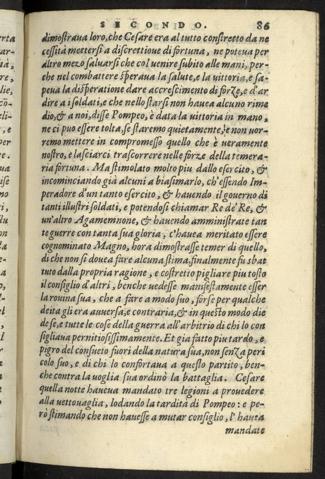 SECONDO. 86
dimostraua loro, che Cesare era al tutto constretto da ne
cessità mettersi a discrettione di fortuna, ne poteua per
altro mezo saluarsi che col uenire subito alle mani, per-
che nel combattere speraua la salute, e la uittoria, e sa-
peua la disperatione dare accrescimento di forze, e d'ar
dire a i soldati, e che nello starsi non hauea alcuno rime
dio, & a noi, disse Pompeo, è data la uittoria in mano,
ne ci può essere tolta, se staremo quietamente, e non uor-
remo mettere in compromesso quello che è ueramente
nostro, e lasciarci trascorrere nelle forze della temera-
ria fortuna. Ma stimolato molto piu dallo esercito, &
incominciando già alcuni a biasimarlo, ch'essendo Im-
peradore d'un tanto esercito, & hauendo il gouerno di
tanti illustri soldati, e potendosi chiamar Re de' Re, &
un'altro Agamemnone, & hauendo amministrate tan
te guerre con tanta sua gloria, c'hauea meritato essere
cognominato Magno, hora dimostrasse temer di quello,
di che non si douea fare alcuna stima, finalmente fu sbat
tuto dalla propria ragione, e costretto pigliare piu tosto
il consiglio d'altri, benche uedesse manifestamente esser
la rouina sua, che a fare a modo suo, forse per qualche
deità gli era auuersa, e contraria, & in questo modo die
de se, e tutte le cose della guerra all'arbitrio di chi lo con
sigliaua pernitiosissimamente. Et già fatto piu tardo, e
pigro del consueto fuori della natura sua, non senza peri
colo suo, e di chi lo confortaua a questo partito, ben-
che contra la uoglia sua ordinò la battaglia. Cesare
quella notte haueua mandato tre legioni a prouedere
alla vettouaglia, lodando la tardità di Pompeo: e pe-
rò stimando che non hauesse a mutar consiglio, l' hauea
mandate